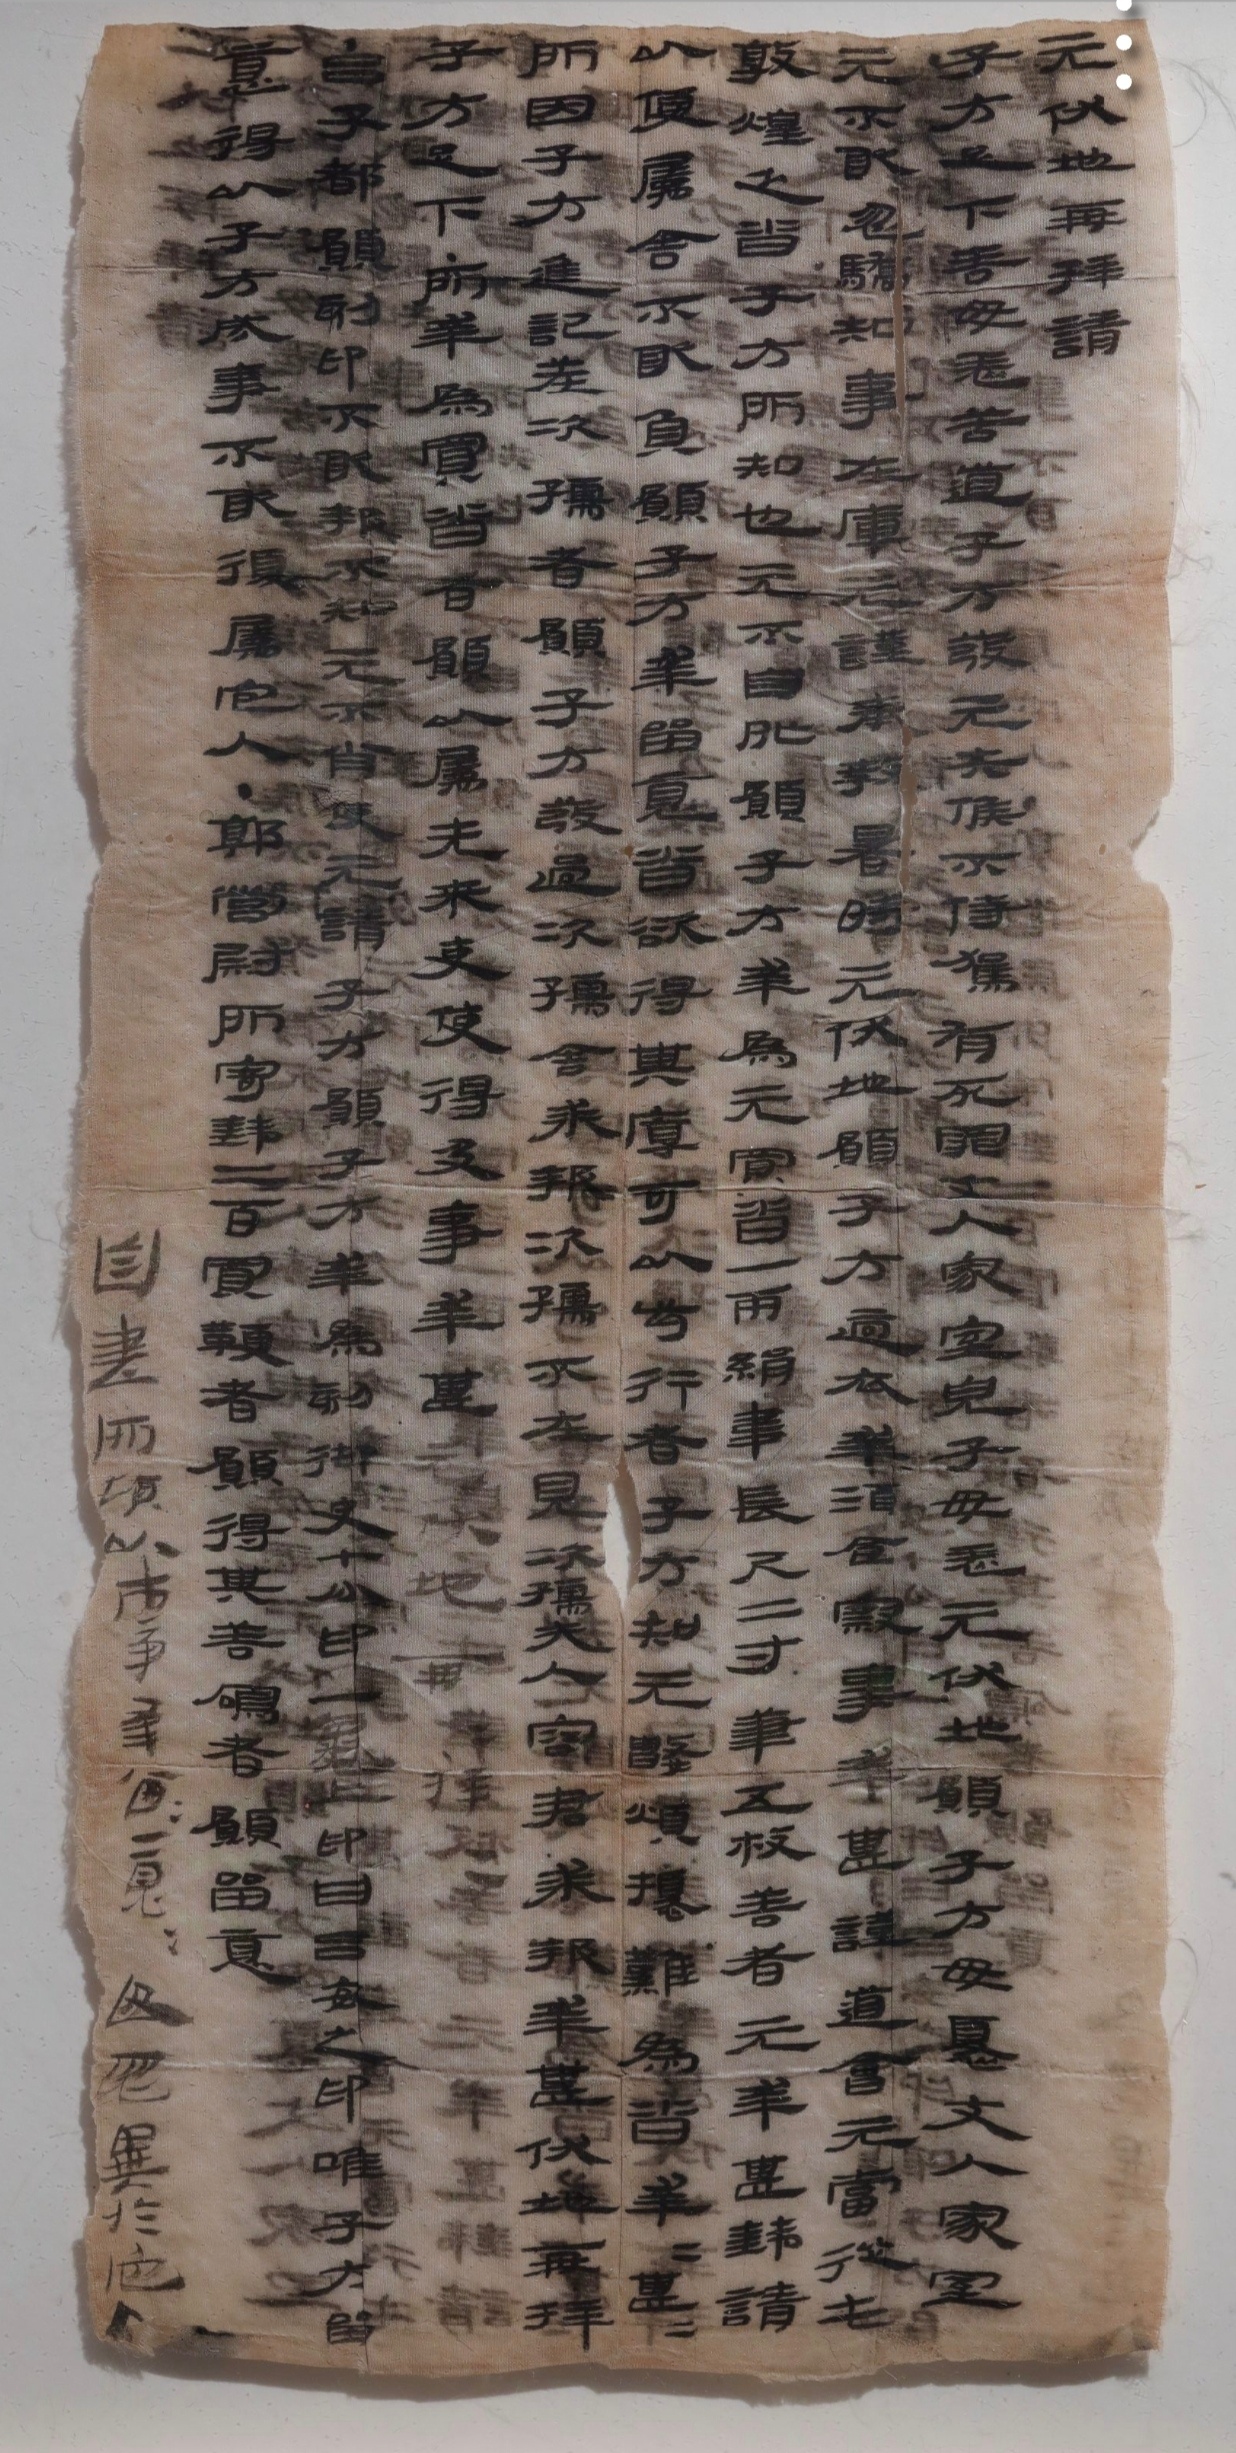 元伏地再拜請
子方足下善毋恙苦道子方發元失候不侍駕有死罪丈人家室兒子毋恙元伏地願子方毋憂丈人家室
元不敢忽驕知事在庫元謹奉教暑時元伏地願子方適衣幸酒食察事幸甚謹道會元當從屯
敦煌乏沓子方所知也元不自外願子方幸為元買沓一兩絹韋長尺二寸筆五枚善者元幸甚錢請
以便屬舍不敢負願子方幸留意沓欲得其厚可以步行者子方知元數煩擾難為沓幸=甚=
所因子方進記差次孺者願子方發過次孺舍求報次孺不在見次孺夫人容君求報幸甚伏地再拜
子方足下·所幸為買沓者願以屬先來吏使得及事幸甚元伏地再拜
·吕子都願刻印不敢報不知元不肖使元請子方願子方幸為刻御史七分印一龜上印曰吕安之印唯子方留
意得以子方成事不敢復屬它人·郭營尉所寄錢二百買鞭者願得其善鳴者願留意
自書所願以市事幸留=意=毋忽異於它人